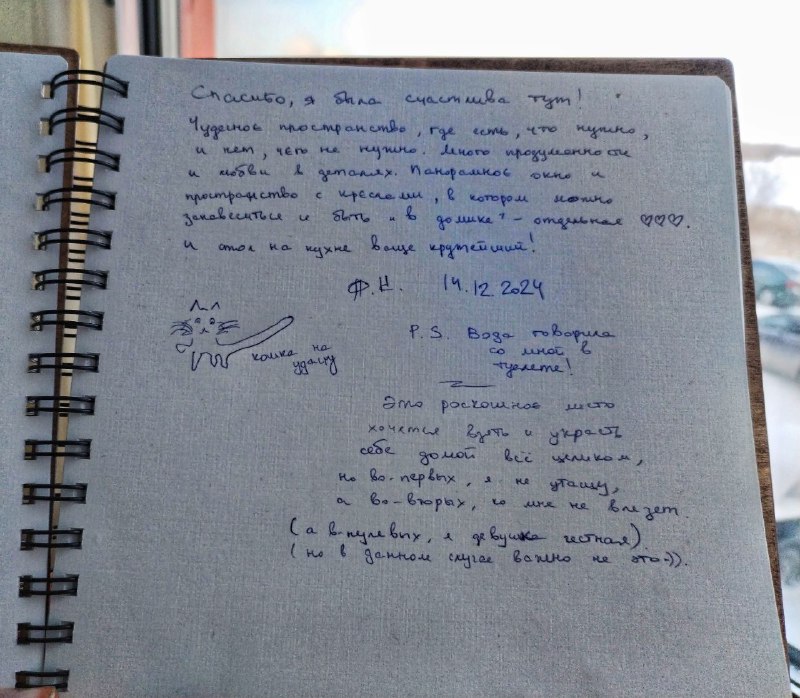 Спасибо, я была счастлива тут!
Чудесное пространство, где есть, что нужно,
и нет, чего не нужно. Много продуманности
и любви в деталях. Панорамное окно и
пространство с креслами, в котором можно
занавеситься и быть "в домике" - отдельная ♡♡♡.
И стол на кухне ваще крутейший!
Ф.Н. 14.12.2024
кошка на
удачу
P.S. Вода говорила
со мной в
туалете!
Это роскошное место
хочется взять и украсть
себе домой всё целиком,
но во-первых, я не утащу,
а во-вторых, ко мне не влезет.
(а в-нулевых, я девушка честная)
(но в данном случае важно не это-)).